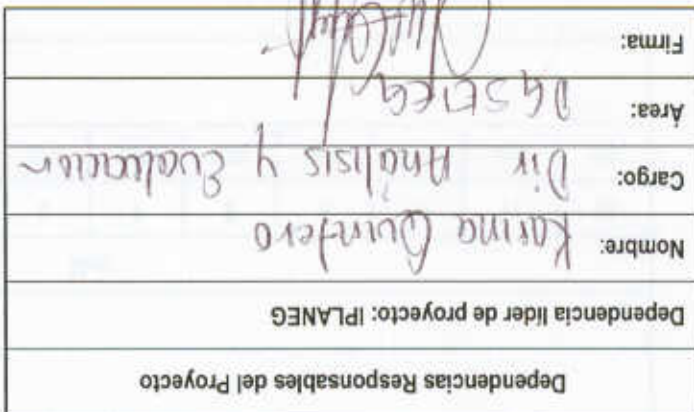 Dependencias Responsables del Proyecto
Dependencia líder de proyecto: IPLANEG
Nombre: Karina Quintero
Cargo: Dir Análisis y Evaluación
Área: DGSEIEG
Firma: